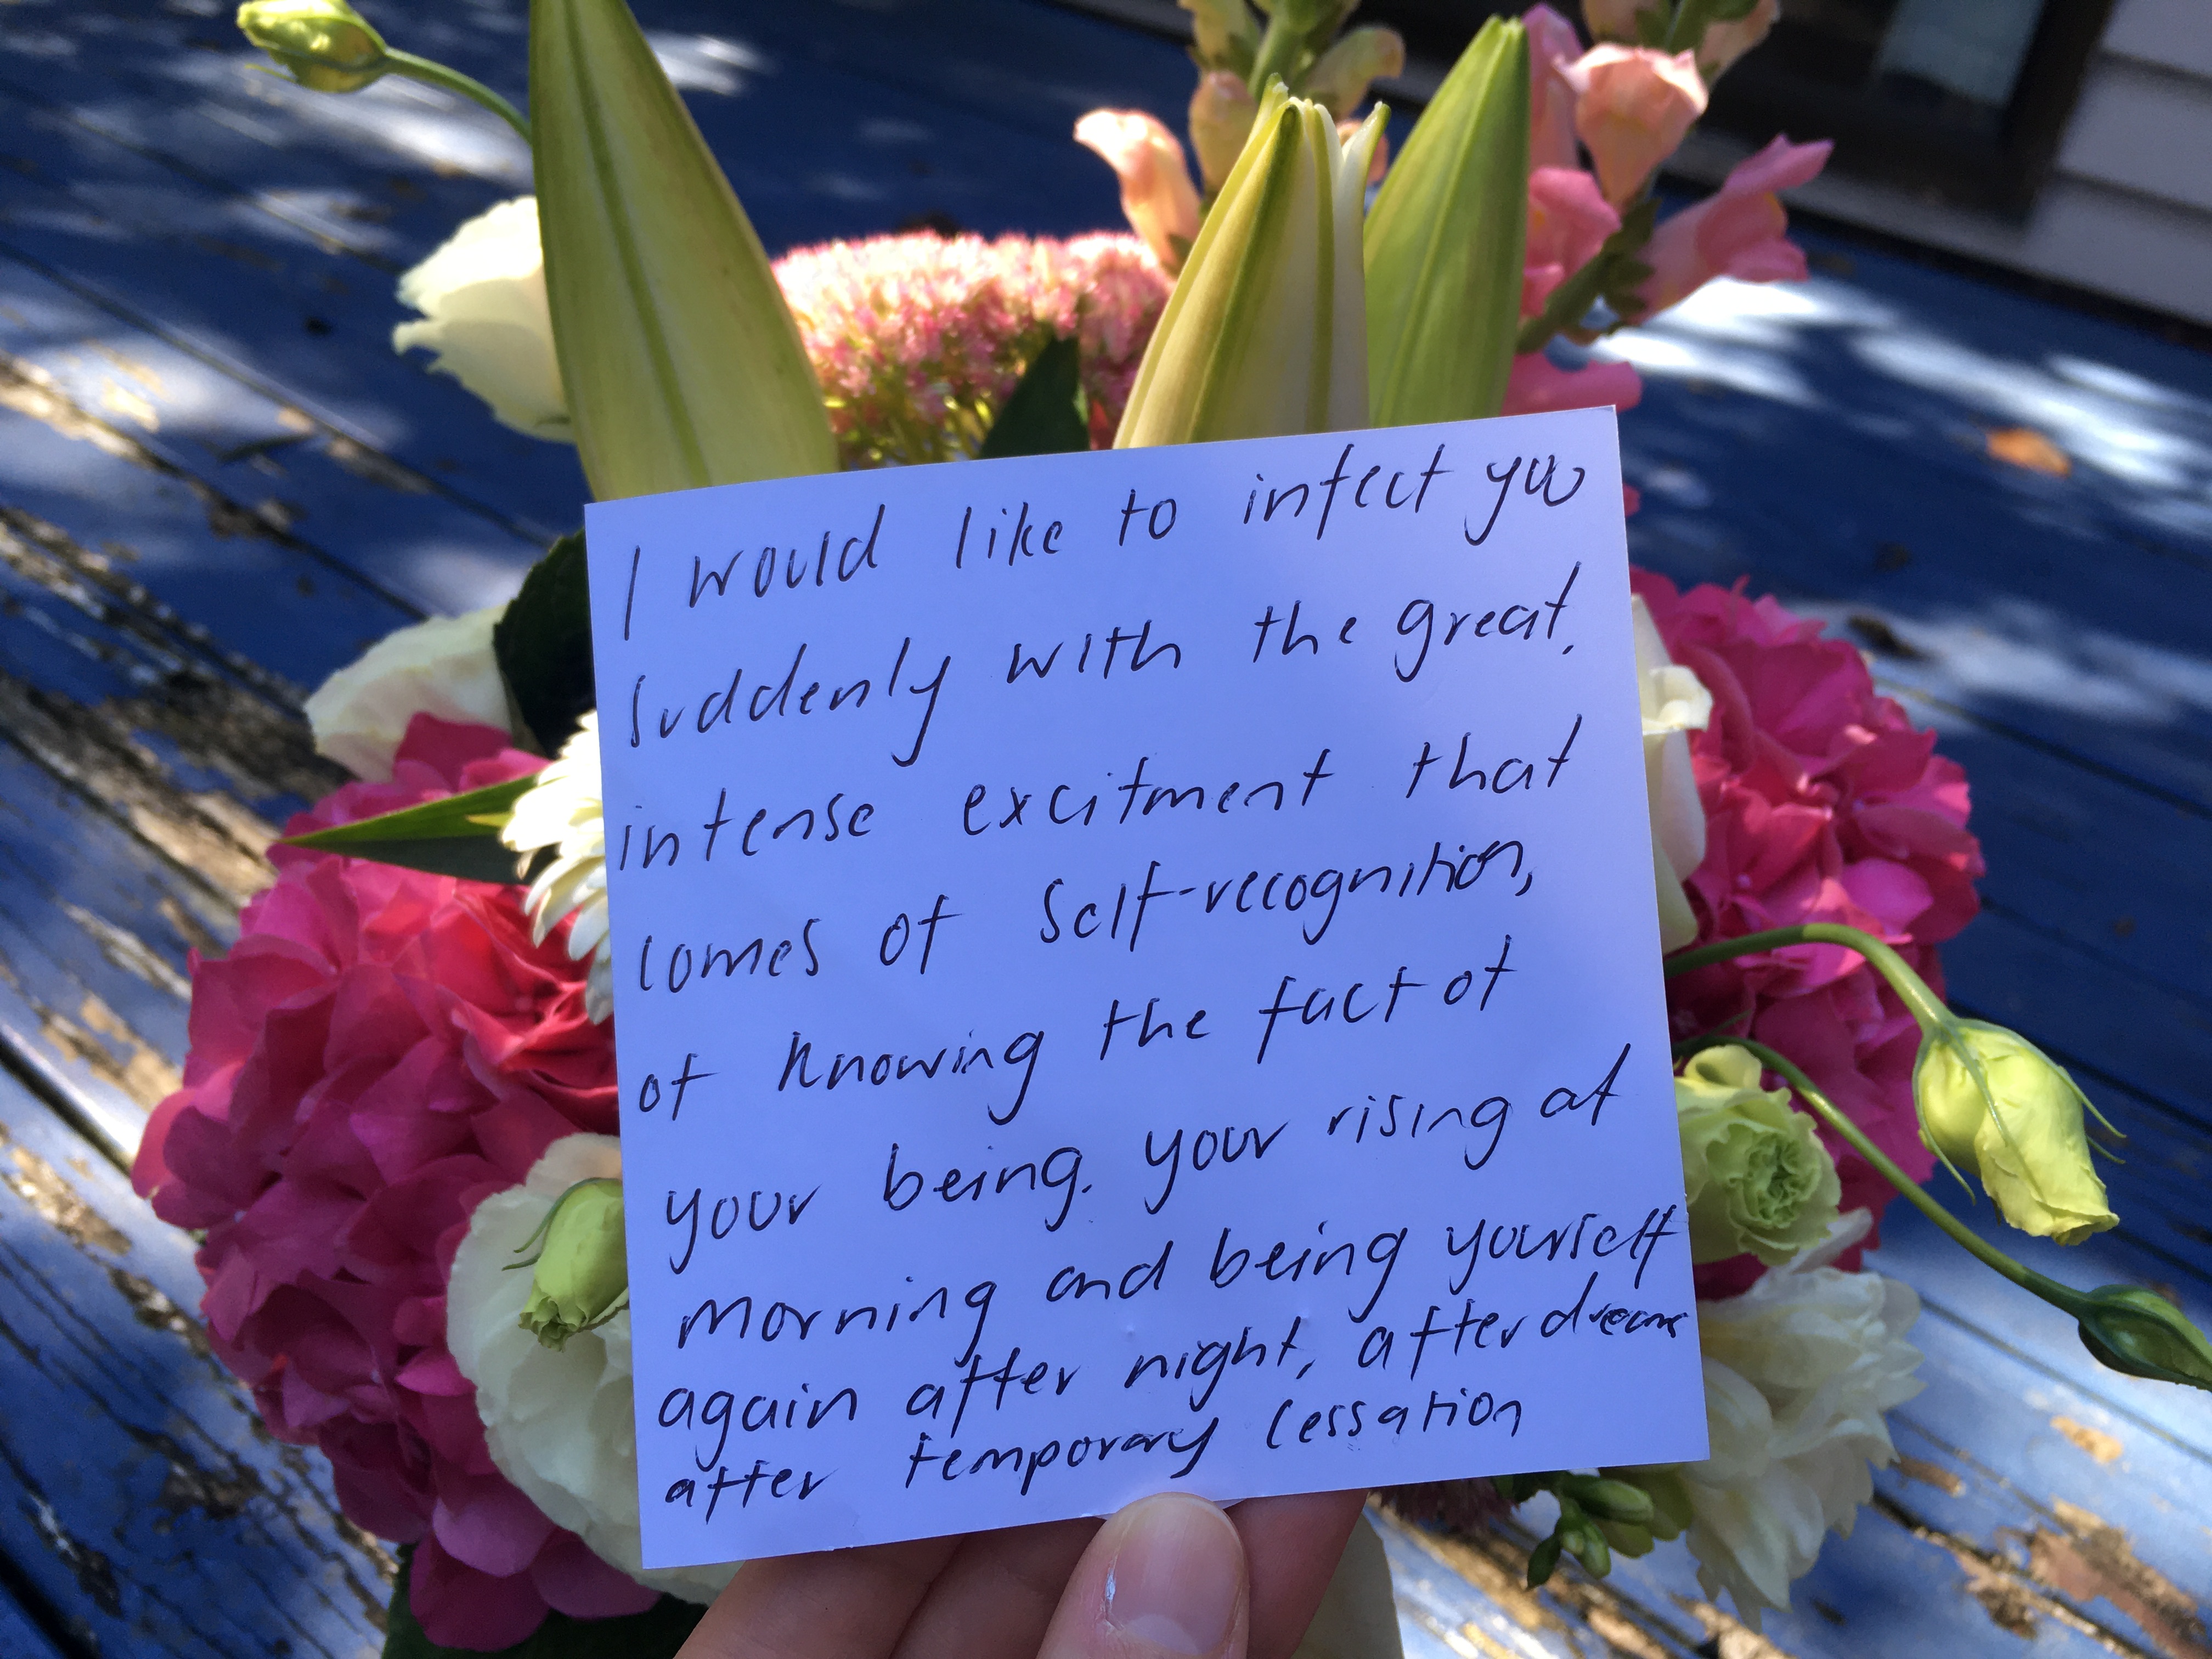 I would like to infect you
suddenly with the great,
intense excitment that
comes of self-recognition,
of knowing the fact of
your being. your rising at
morning and being yourself
again after night, after dreams
after temporary cessation